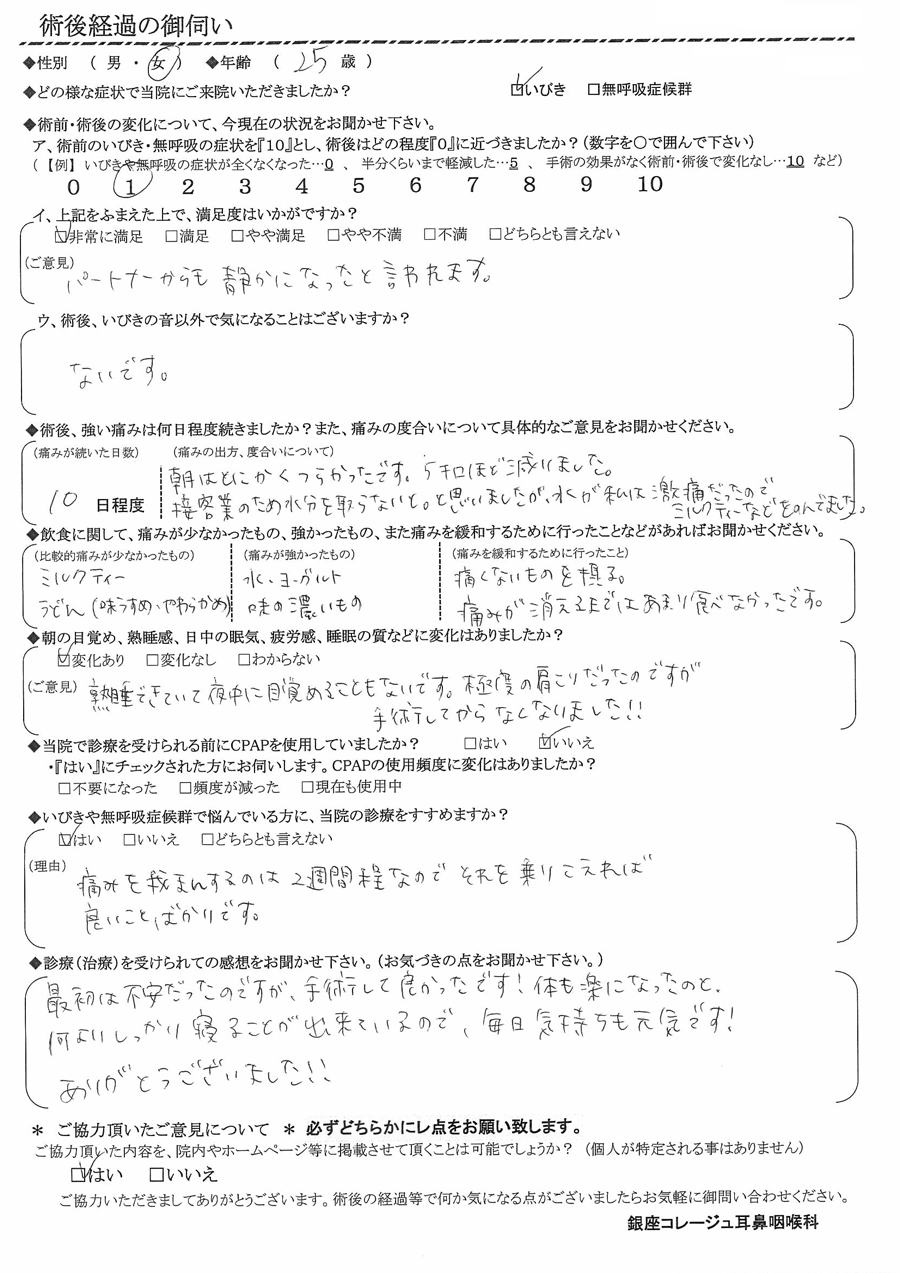 術後経過の御伺い
◆性別 ( 男 ・ 女 ) ◆年齢 ( 25 歳 )
◆どの様な症状で当院にご来院いただきましたか? ☑いびき □無呼吸症候群
◆術前・術後の変化について、今現在の状況をお聞かせ下さい。
ア、術前のいびき・無呼吸の症状を『10』とし、術後はどの程度『0』に近づきましたか?(数字を○で囲んで下さい)
(【例】 いびきや無呼吸の症状が全くなくなった…0 、 半分くらいまで軽減した…5 、 手術の効果がなく術前・術後で変化なし…10 など)
0 1 2 3 4 5 6 7 8 9 10
イ、上記をふまえた上で、満足度はいかがですか?
☑非常に満足 □満足 □やや満足 □やや不満 □不満 □どちらとも言えない
(ご意見)
パートナーからも 静かになったと言われます。
ウ、術後、いびきの音以外で気になることはございますか?
ないです。
◆術後、強い痛みは何日程度続きましたか?また、痛みの度合いについて具体的なご意見をお聞かせください。
(痛みが続いた日数) (痛みの出方、度合いについて)
朝はとにかくつらかったです。5キロほど減りました。
10 日程度 接客業のため水分を取らないと。と思いましたが、水が私は激痛だったので
ミルクティーなどをのんでました。
◆飲食に関して、痛みが少なかったもの、強かったもの、また痛みを緩和するために行ったことなどがあればお聞かせください。
(比較的痛みが少なかったもの) (痛みが強かったもの) (痛みを緩和するために行ったこと)
ミルクティー 水、ヨーグルト 痛くないものを摂る。
うどん(味うすめ・やわらかめ) 味の濃いもの 痛みが消えるまではあまり食べなかったです。
◆朝の目覚め、熟睡感、日中の眠気、疲労感、睡眠の質などに変化はありましたか?
☑変化あり □変化なし □わからない
(ご意見) 熟睡できていて夜中に目覚めることもないです。極度の肩こりだったのですが
手術してからなくなりました!!
◆当院で診療を受けられる前にCPAPを使用していましたか? □はい ☑いいえ
・『はい』にチェックされた方にお伺いします。CPAPの使用頻度に変化はありましたか?
□不要になった □頻度が減った □現在も使用中
◆いびきや無呼吸症候群で悩んでいる方に、当院の診療をすすめますか?
☑はい □いいえ □どちらとも言えない
(理由)
痛みを我まんするのは2週間程なのでそれを乗りこえれば
良いことばかりです。
◆診療(治療)を受けられての感想をお聞かせ下さい。(お気づきの点をお聞かせ下さい。)
最初は不安だったのですが、手術して良かったです!体も楽になったのと、
何よりしっかり寝ることが出来ているので、毎日気持ちも元気です!
ありがとうございました!!
* ご協力頂いたご意見について * 必ずどちらかにレ点をお願い致します。
ご協力頂いた内容を、院内やホームページ等に掲載させて頂くことは可能でしょうか? (個人が特定される事はありません)
☑はい □いいえ
ご協力いただきましてありがとうございます。術後の経過等で何か気になる点がございましたらお気軽に御問い合わせください。
銀座コレージュ耳鼻咽喉科